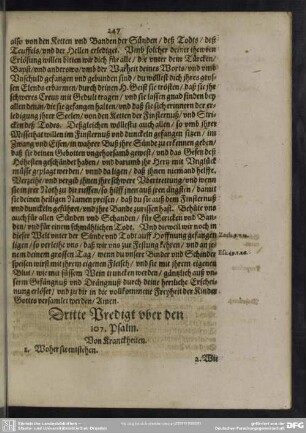 247
also von den Ketten und Banden der Sünden / deß Todts / deß
Teuffels / und der Hellen erlediget. Umb solcher deiner thewren
Erlösung willen bitten wir dich für alle / die unter dem Türcken /
Bapst / und anderswo / umb der Warheit deines Worts / und umb
Unschuld gefangen und gebunden sind / du wöllest dich ihres gros-
sen Elends erbarmen / durch deinen H. Geist sie trösten / daß sie ihr
schweres Creutz mit Gedult tragen / und sie lassen gnad finden bey
allen denen / die sie gefangen halten / und daß sie sich erinnern der er-
ledigung ihrer Seelen / von den Ketten der Finsternuß / und Stri-
cken deß Todts. Deßgleichen wöllestu auch allen / so umb ihrer
Missethat willen im Finsternuß und dunckeln gefangen sitzen / im
Zwang und Eissen / in wahrer Buß ihre Sünde zu erkennen geben /
daß sie deinen Geboten ungehorsamb gewest / und das Gesetz deß
Höhesten geschändet haben / und darumb ihr Hertz mit Unglück
müsse geplagt werden / und da ligen / daß ihnen niemand helffe.
Verzeihe / und vergib ihnen ihre schwere Übertrettung / und wenn
sie in ihrer Noth zu dir ruffen / so hilff ihnen auß ihren ängsten / damit
sie deinen heiligen Namen preisen / daß du sie auß dem Finsternuß
und dunckeln geführet / und ihre Bande zurissen hast. Behüte uns
auch für allen Sünden und Schanden / für Stricken und Ban-
den / und für einem schmählichen Todt. Und dieweil wir noch in
dieser Welt unter der Sünde und Todt auff Hoffnung gefangen
ligen / so verleihe uns / daß wir uns zur Festung kehren / und an je-
nem deinem grossen Tag / wenn du unsere Binder und Schinder
speisen wirst mit ihrem eigenen Fleisch / und sie mit ihrem eigenen
Blut / wie mit süssem Wein truncken werden / gäntzlich auß un-
serm Gefängnuß und Drängnuß durch deine herrliche Erschei-
nung erlöset / und zu dir in die vollkommene Freyheit der Kinder
Gottes versamlet werden / Amen.
Dritte Predigt uber den
107. Psalm.
Von Kranckheiten.
1. Woher sie entstehen.